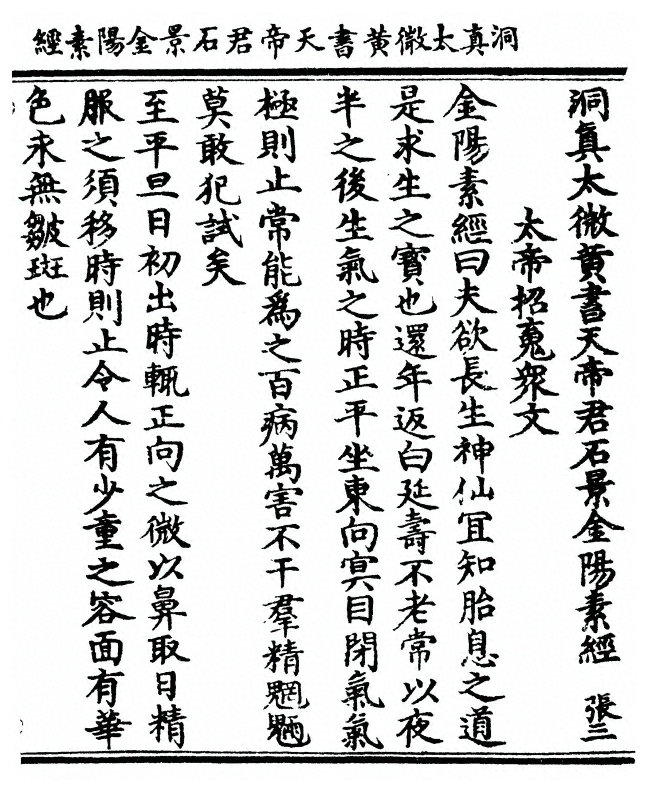 洞真太微黄書天帝君石景金陽素經
洞真太微黄書天帝君石景金陽素經 張三
太帝招䰟衆文
金陽素經曰夫欲長生神仙冝知胎息之道
是求生之寶也還年返白延壽不老常以夜
半之後生氣之時正平坐東向㝠目閉氣氣
極則止常能爲之百病萬害不干羣精魍魎
莫敢犯試矣
至平旦日初出時輒正向之微以鼻取日精
服之須移時則止令人有少童之容面有華
色永無皺斑也